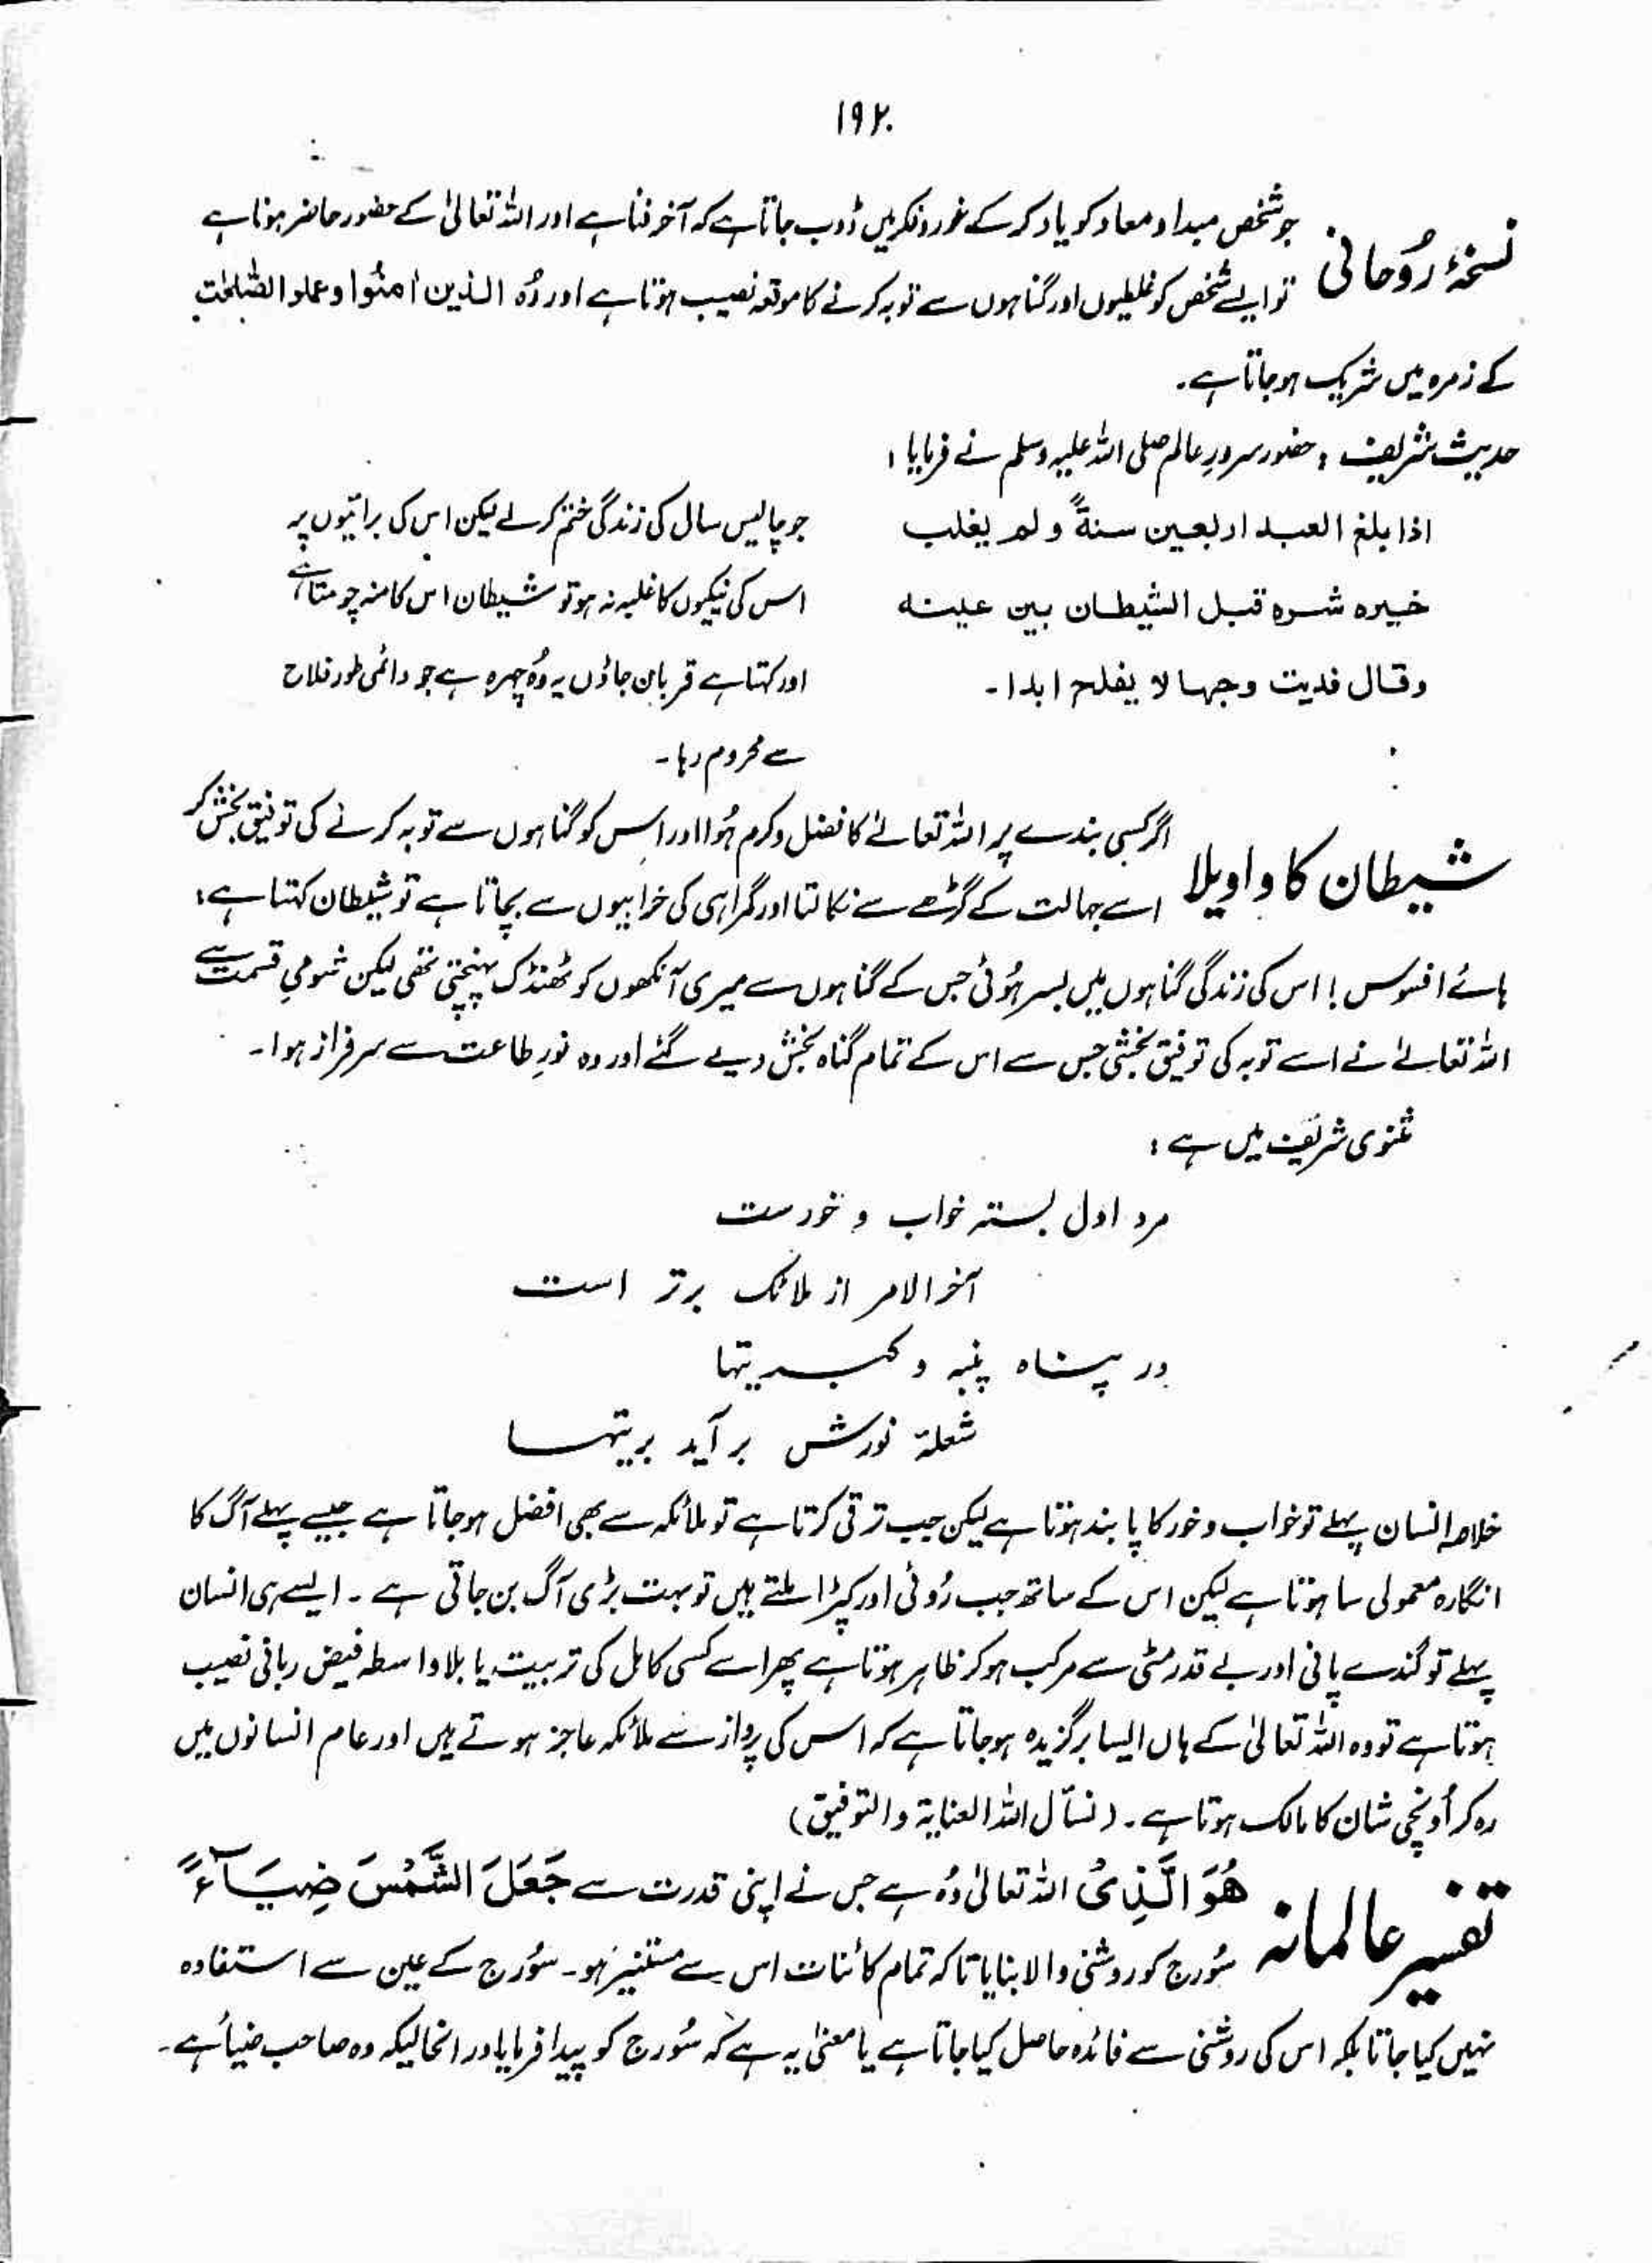 ۱۹۲
نسخۂ رُوحانی جو شخص مبدا و معاد کو یاد کر کے غور و فکر میں ڈوب جاتا ہے کہ آخر فنا ہے اور اللہ تعالیٰ کے حضور حاضر ہونا ہے
تو ایسے شخص کو غلطیوں اور گناہوں سے توبہ کرنے کا موقعہ نصیب ہوتا ہے اور وُہ الذین اٰمنُوا و عملو الصّٰلحٰت
کے زمرہ میں شریک ہو جاتا ہے۔
حدیث شریف : حضور سرورِ عالم صلی اللہ علیہ وسلم نے فرمایا :
اذا بلغ العبد اربعین سنةً و لم یغلب
خیرہ شرہ قبل الشیطان بین عینہ
وقال فدیت وجہا لا یفلح ابدا۔
جو چالیس سال کی زندگی ختم کر لے لیکن اس کی برائیوں پر
اس کی نیکیوں کا غلبہ نہ ہو تو شیطان اس کا منہ چومتا ہے
اور کہتا ہے قربان جاؤں یہ وُہ چہرہ ہے جو دائمی طور فلاح
سے محروم رہا۔
شیطان کا واویلا اگر کسی بندے پر اللہ تعالےٰ کا فضل و کرم ہُوا اور اس کو گناہوں سے توبہ کرنے کی توفیق بخش کر
اسے جہالت کے گڑھے سے نکالتا اور گمراہی کی خرابیوں سے بچاتا ہے تو شیطان کہتا ہے :
ہائے افسوس ! اس کی زندگی گناہوں میں بسر ہُوئی جس کے گناہوں سے میری آنکھوں کو ٹھنڈک پہنچتی تھی لیکن شومیِ قسمت سے
اللہ تعالےٰ نے اسے توبہ کی توفیق بخشی جس سے اس کے تمام گناہ بخش دیے گئے اور وہ نورِ طاعت سے سرفراز ہوا۔
مثنوی شریف میں ہے :
مرد اول بستہ خواب و خورست
آخر الامر از ملائک برتر است
در پناہ پنبہ و کبریتہا
شعلۂ نورش بر آید بریتہا
خلاصہ انسان پہلے تو خواب و خور کا پابند ہوتا ہے لیکن جب ترقی کرتا ہے تو ملائکہ سے بھی افضل ہو جاتا ہے جیسے پہلے آگ کا
انگارہ معمولی سا ہوتا ہے لیکن اس کے ساتھ جب رُوئی اور کپڑا ملتے ہیں تو بہت بڑی آگ بن جاتی ہے ۔ ایسے ہی انسان
پہلے تو گندے پانی اور بے قدر مٹی سے مرکب ہو کر ظاہر ہوتا ہے پھر اسے کسی کامل کی تربیت یا بلا واسطہ فیض ربانی نصیب
ہوتا ہے تو وہ اللہ تعالیٰ کے ہاں ایسا برگزیدہ ہو جاتا ہے کہ اس کی پرواز سے ملائکہ عاجز ہوتے ہیں اور عام انسانوں میں
رہ کر اُونچی شان کا مالک ہوتا ہے۔ (نسأل اللہ العنایة والتوفیق)
تفسیر عالمانہ ھُوَ الَّذِیْ اللہ تعالیٰ وُہ ہے جس نے اپنی قدرت سے جَعَلَ الشَّمْسَ ضِیَآءً
سُورج کو روشنی والا بنایا تاکہ تمام کائنات اس سے مستنیر ہو۔ سُورج کے عین سے استفادہ
نہیں کیا جاتا بلکہ اس کی روشنی سے فائدہ حاصل کیا جاتا ہے یا معنیٰ یہ ہے کہ سُورج کو پیدا فرمایا در انحالیکہ وہ صاحب ضیأ ہے۔